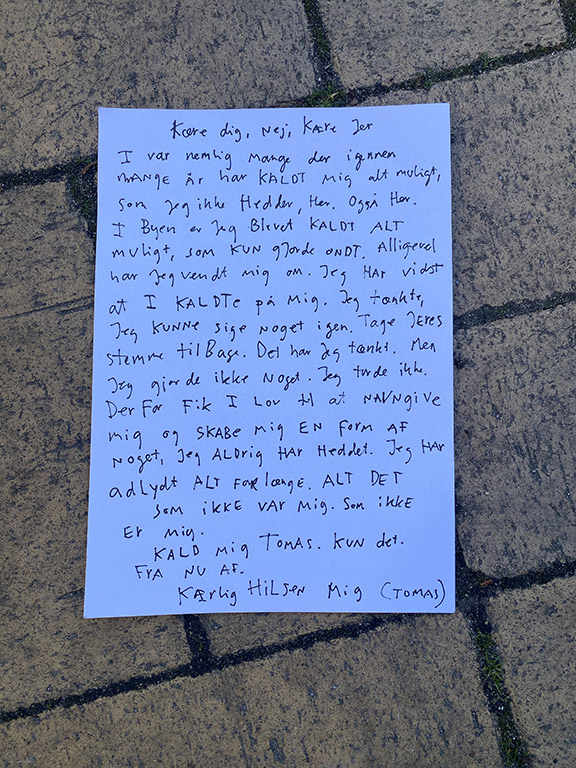 Kære dig, Nej, Kære Jer
I var nemlig mange der igennem
MANGE År har KALDT mig alt muligt,
som Jeg ikke Hedder, Her. Også Her.
I Byen er Jeg Blevet KALDT ALT
muligt, som KUN gjorde ONDT. Alligevel
har Jeg vendt mig om. Jeg HAR vidst
at I KALDTE på Mig. Jeg tænkte,
Jeg KUNNE sige noget igen. Tage JERES
stemme tilBage. Det har Jeg tænkt. Men
Jeg gjorde ikke Noget. Jeg turde ikke.
Derfor Fik I Lov til at NAVNGIVE
mig og SKABE Mig EN Form AF
Noget, Jeg ALDrig HAR Heddet. Jeg HAR
adlydt ALT FOR længe. ALT DET
som ikke VAR Mig. Som ikke
Er mig.
KALD Mig TOMAS. KUN det.
FRA NU AF.
KÆRlig HILSEN Mig (TOMAS)